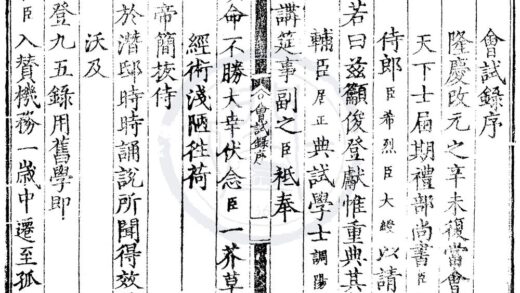 會試錄序
隆慶改元之辛未復當會
天下士屆期禮部尚書臣
侍郎臣希烈臣大綬以請
若曰茲籲俊登獻惟重典其
輔臣居正典試學士調陽
講筵事副之臣祗奉
命不勝大幸伏念臣一芥草
經術淺陋往荷
帝簡拔侍
於潛邸時時誦說所聞得效
沃及
登九五錄用舊學即
臣入贊機務一歲中遷至孤
會試錄序
一